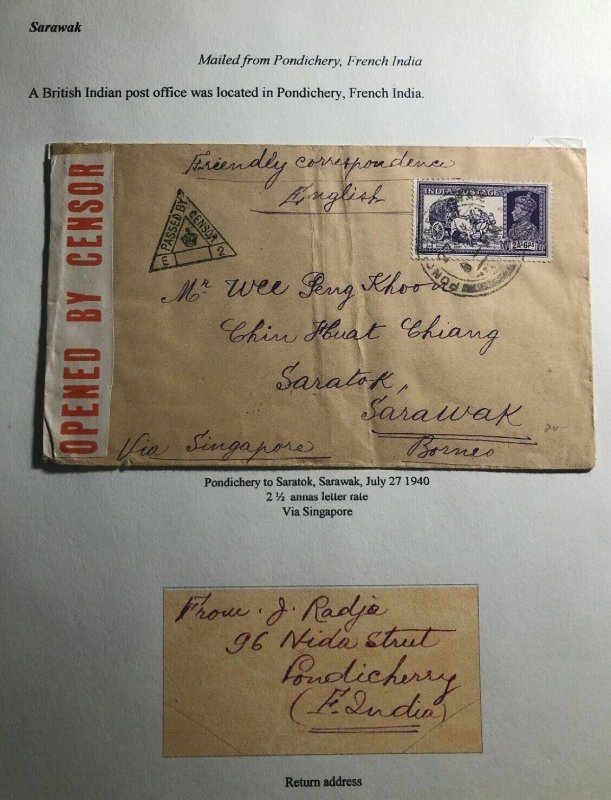 Sarawak
Mailed from Pondichery, French India
A British Indian post office was located in Pondichery, French India.
OPENED BY CENSOR
Friendly correspondence
English
PASSED BY
CENSOR
E 2
INDIA POSTAGE
2½As
PONDI
Mr Wee Peng Khoon
Chin Huat Chiang
Saratok,
SARAWAK
Borneo
Via Singapore
20-
Pondichery to Saratok, Sarawak, July 27 1940
2 ½ annas letter rate
Via Singapore
From. J. Radja
96 Nida Street
Pondicherry
(F. India)
Return address